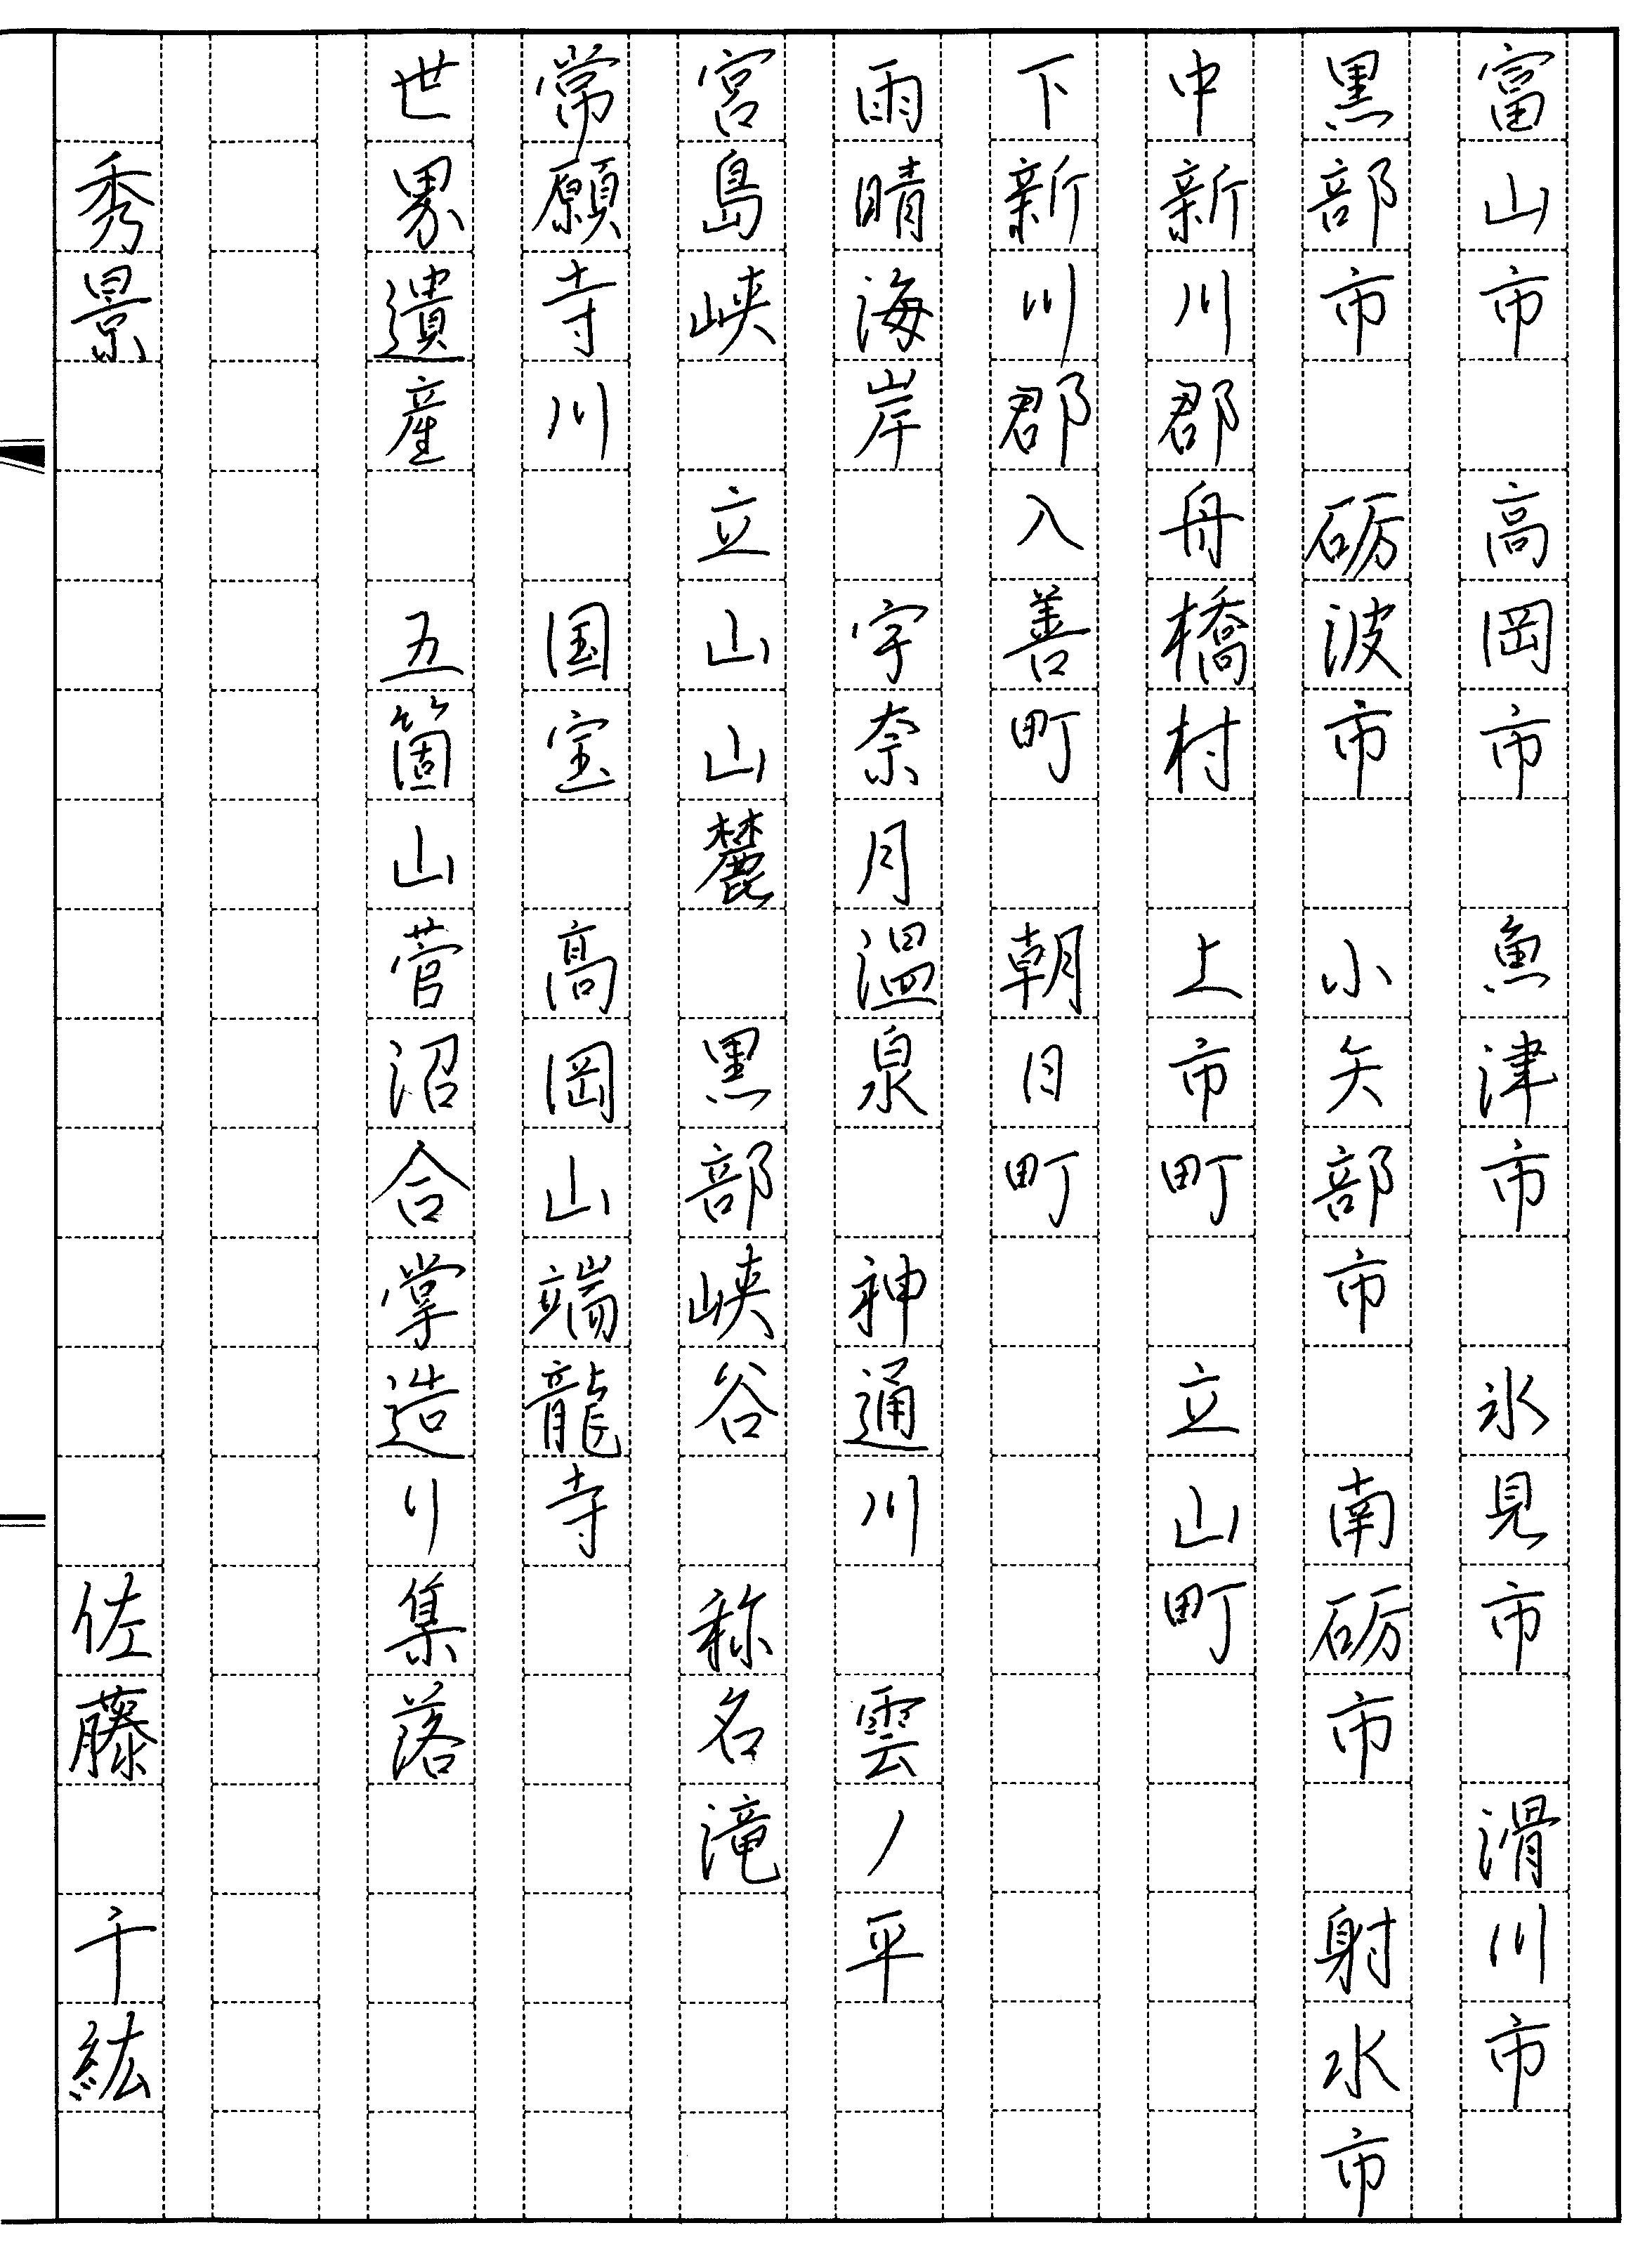 富山市　高岡市　魚津市　氷見市　滑川市
黒部市　砺波市　小矢部市　南砺市　射水市
中新川郡舟橋村　上市町　立山町
下新川郡入善町　朝日町
雨晴海岸　宇奈月温泉　神通川　雲ノ平
宮島峡　立山山麓　黒部峡谷　称名滝
常願寺川　国宝　高岡山端龍寺
世界遺産　五箇山菅沼合掌造り集落
秀景　佐藤　千紘